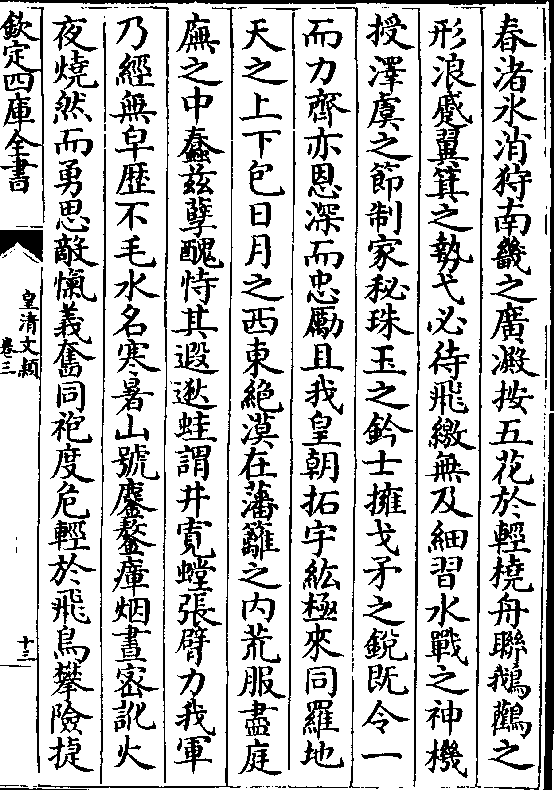 春渚氷消狩南畿之廣澱按五花於輕橈舟聯鵝鸛之
形浪蹙翼箕之勢弋必待飛繳無及細習水戰之神機
授澤虞之節制家秘珠玉之鈐士擁戈矛之銳既令一
而力齊亦恩深而忠勵且我皇朝拓宇紘極來同羅地
天之上下包日月之西東絶漠在藩籬之内荒服盡庭
廡之中蠢兹孽醜恃其遐逖蛙謂井寛螳張臂力我軍
乃經無皁歴不毛水名寒暑山號鏖鏊庫烟晝密訛火
夜燒然而勇思敵愾義奮同袍度危輕於飛鳥攀險捷
欽定四庫全書
皇清文頴
卷三
十三